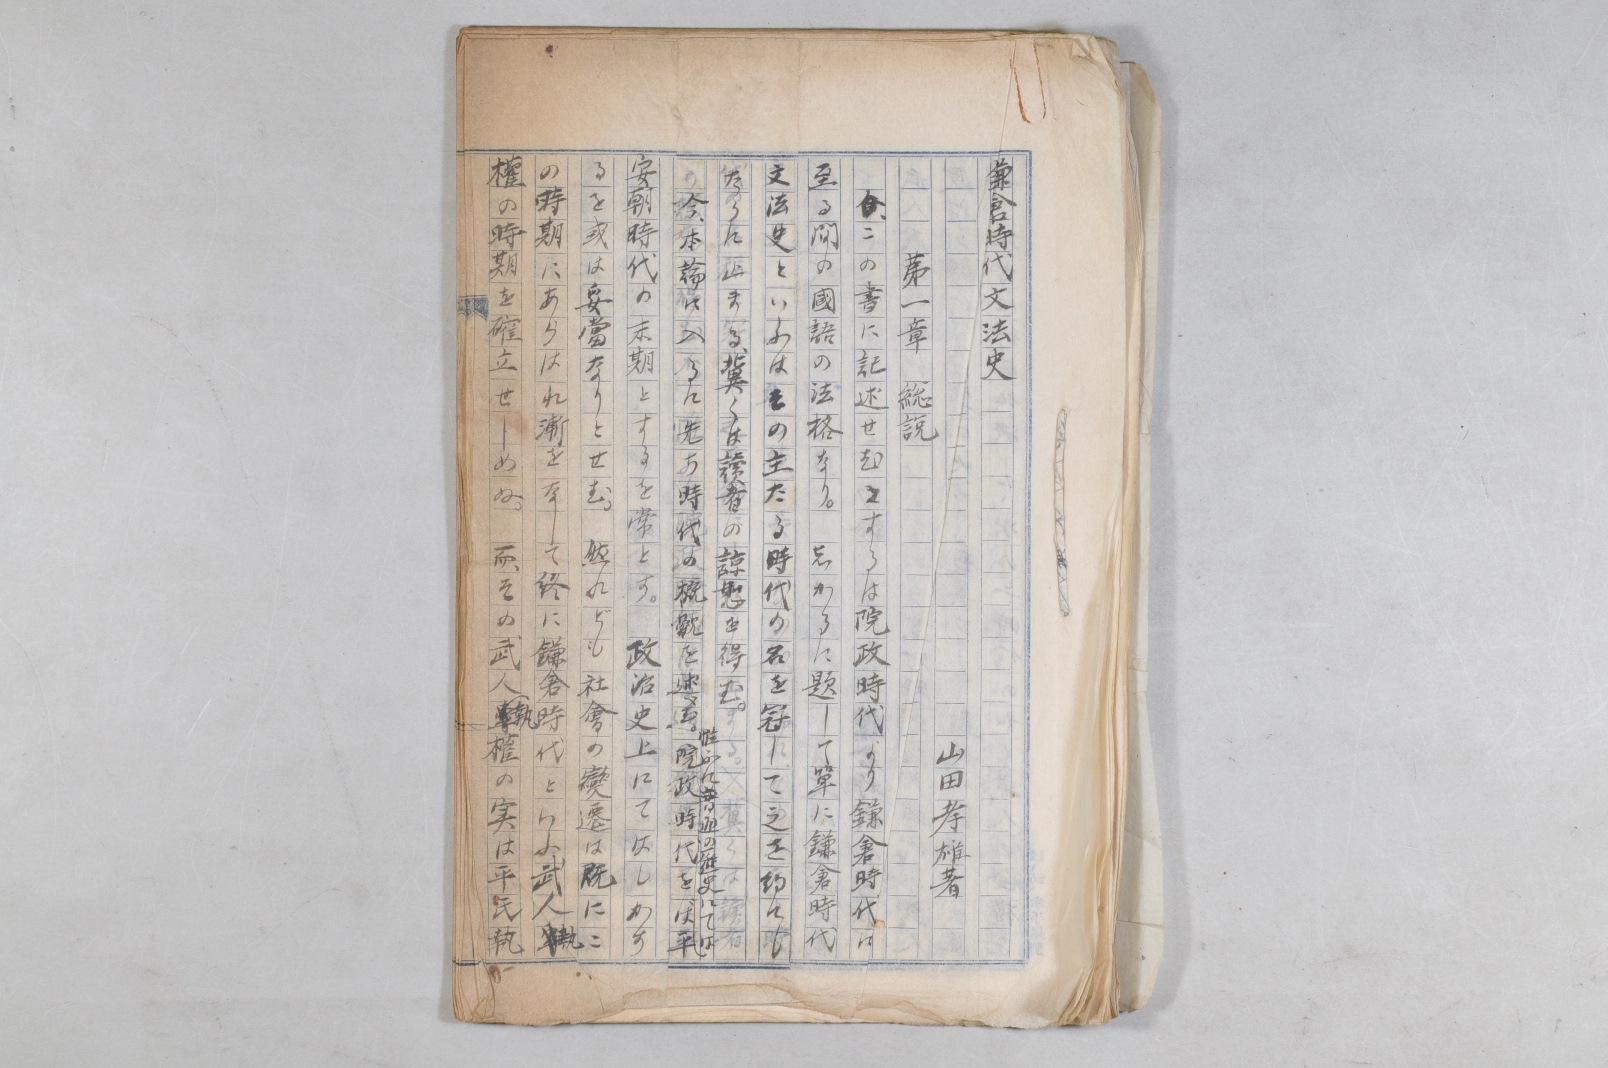 鎌倉時代文法史
山田孝雄著
第一章　総説
今、この書に記述せむとするは院政時代より鎌倉時代に
至る間の國語の法格なり。しかるに題して單に鎌倉時代
文法史といふはその主たる時代の名を冠して之を約にし
たるに止まる、冀くは讀者の諒恕を得む。
今、本論に入るに先ち時代の概觀を述む。院政時代をば平
普通の歴史にては
安朝時代の末期とするを常とす。政治史上にてはしかす
るを或は妥當なりとせむ。然れども社會の變遷は既にこ
の時期にあらはれ漸をなして終に鎌倉時代といふ武人執
權の時期を確立せしめぬ。而、その武人執權の実は平氏執